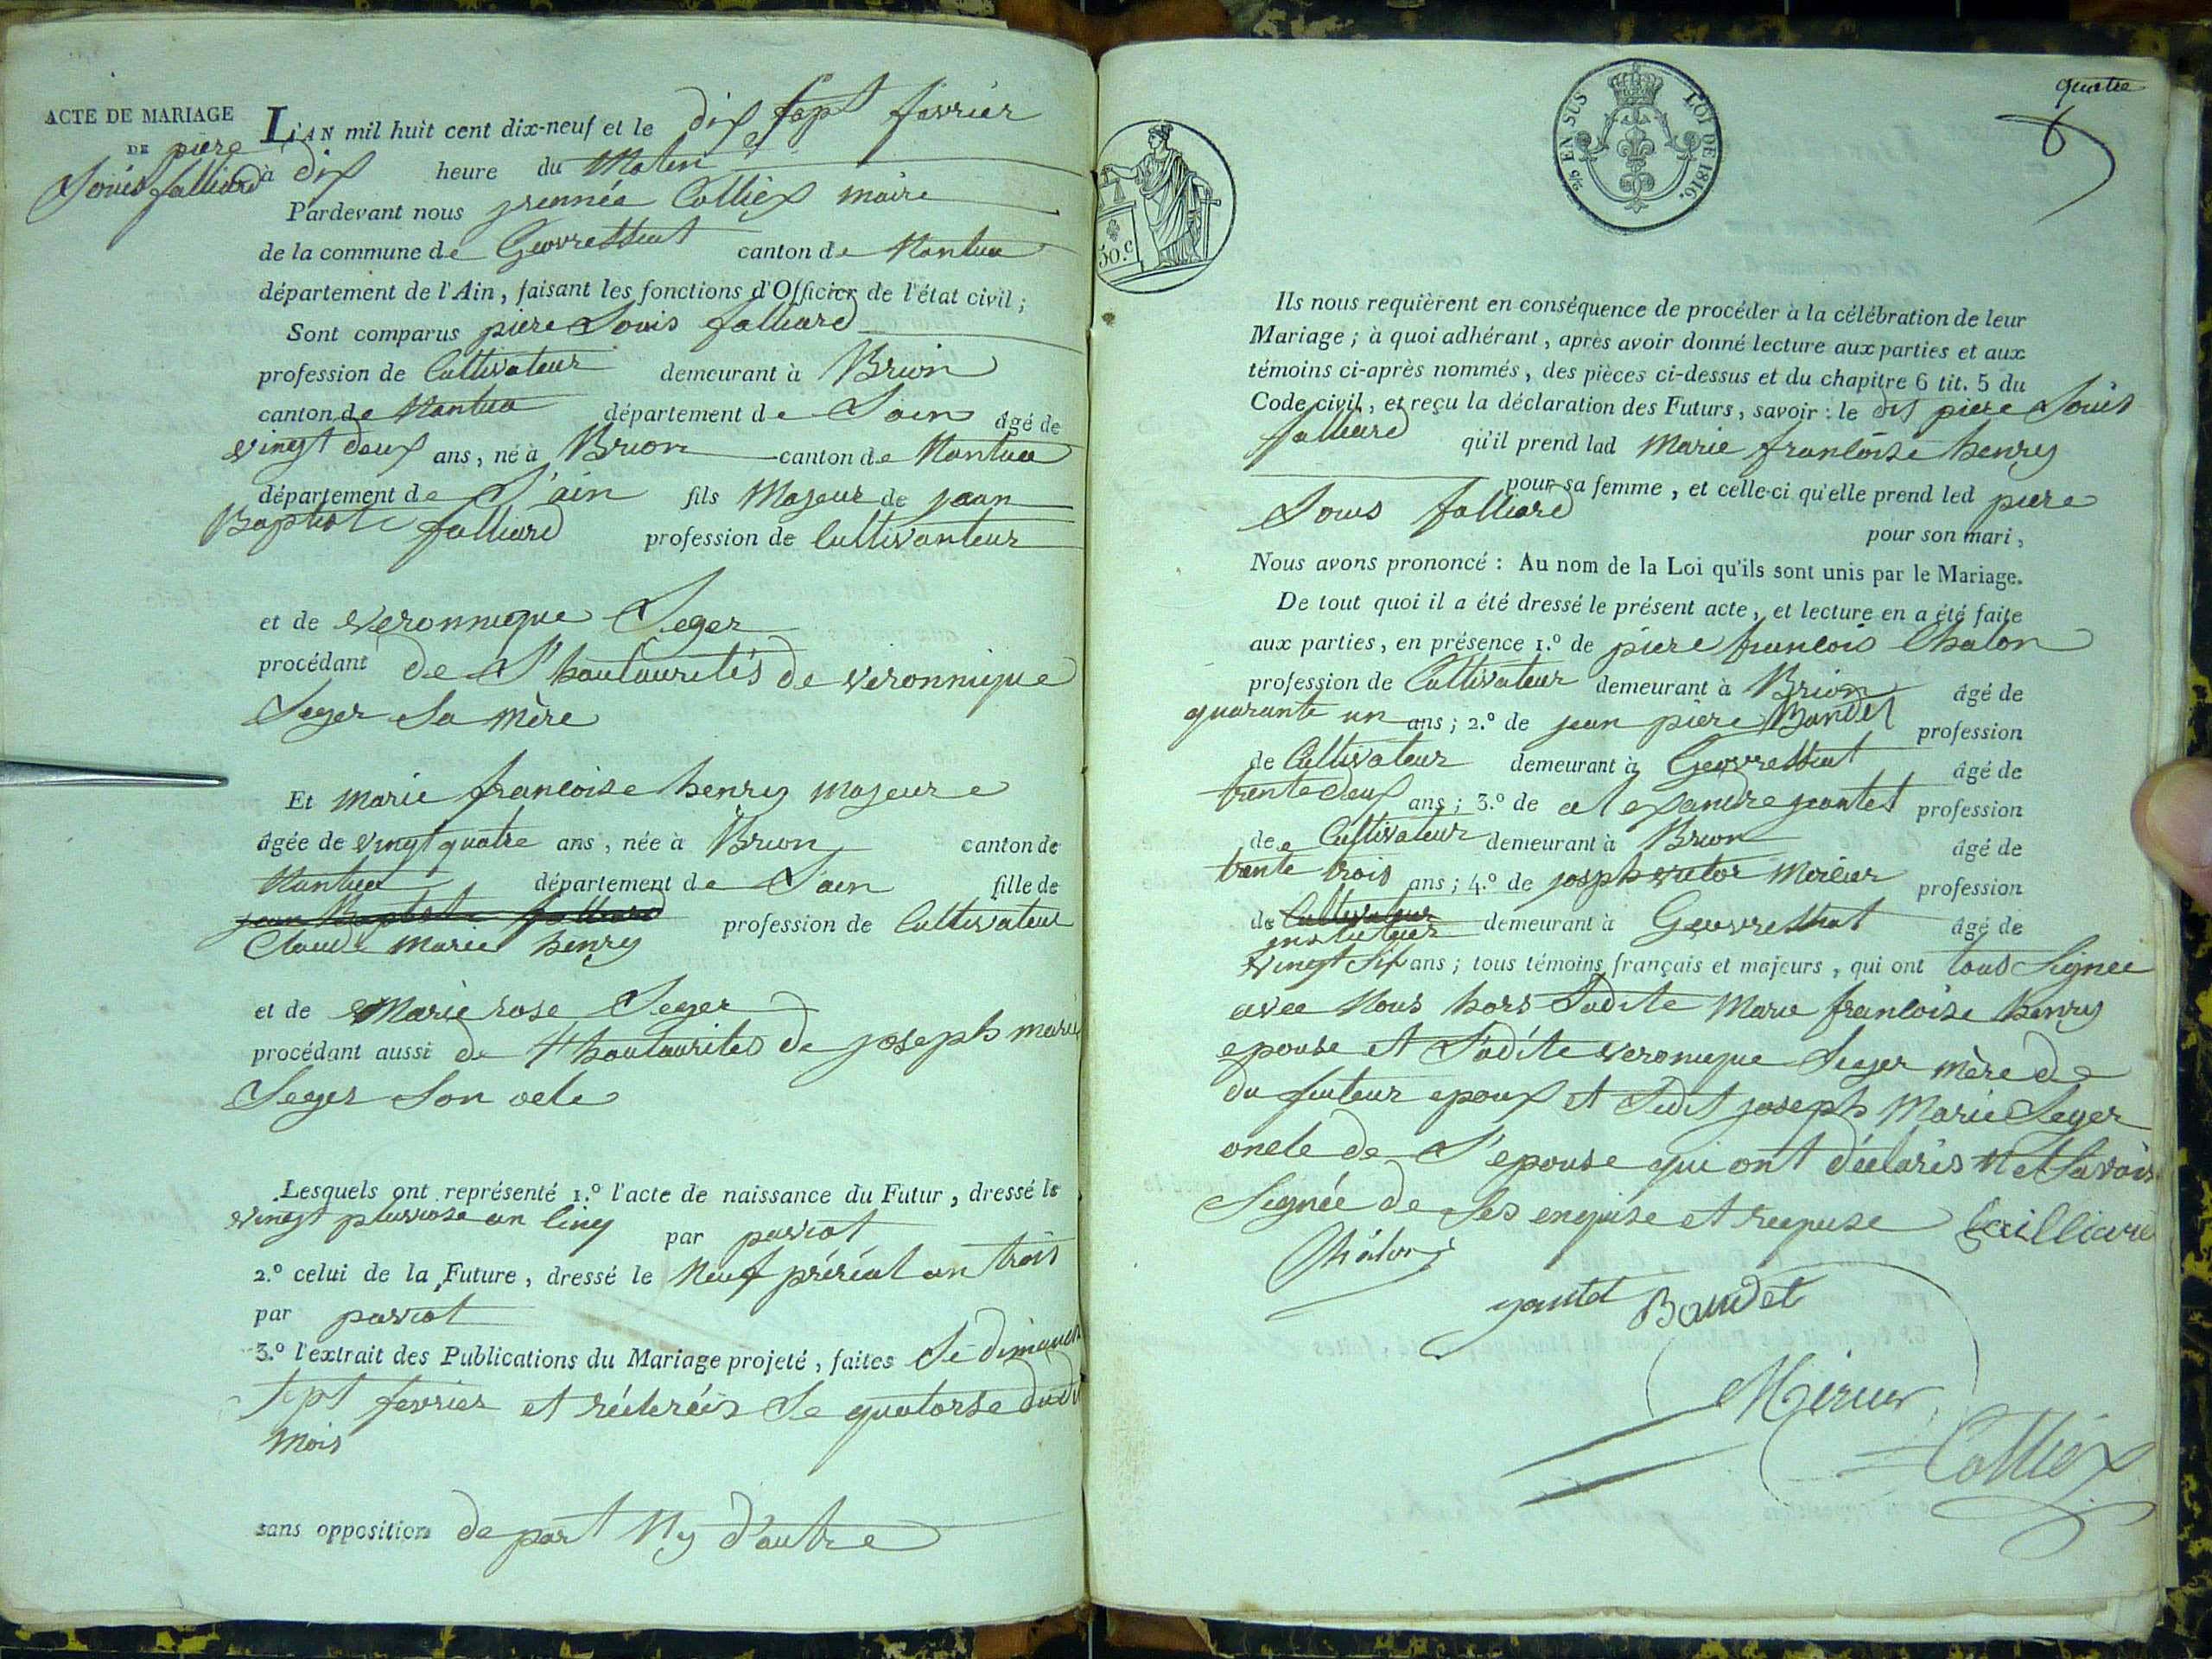 ACTE DE MARIAGE
DE piere
Louis falliard
L'AN mil huit cent dix-neuf et le dix sept fevrier
à dix heure du Matin
Pardevant nous Colliex maire
de la commune de Geovressiat canton de Nantua
département de l'Ain, faisant les fonctions d'Officier de l'état civil;
Sont comparus piere Louis falliard
profession de Cultivateur demeurant à Brion
canton de Nantua département de Lain âgé de
vingt deux ans, né à Brion canton de Nantua
département de L'ain fils Majeur de jean
Baptiste falliard profession de Cultivanteur
et de veronnique Seger
procédant de L'hautaurités de veronnique
Seger Sa mère
Et marie francoise henry majeure
âgée de vingt quatre ans, née à Brion canton de
Nantua département de Lain fille de
jean Baptiste falliard profession de Cultivateur
Claude marie henry
et de Marie rose Seger
procédant aussi de L'hautaurites de joseph marie
Seger Son ocle
Lesquels ont représenté 1.º l'acte de naissance du Futur, dressé le
vingt pluviose an cinq par paviot
2.º celui de la Future, dressé le Neuf préréal an trois
par paviot
3.º l'extrait des Publications du Mariage projeté, faites Le dimanch
Sept fevrier et réiteréés Le quatorse dudit
mois
sans opposition de part Ny d'autre
quatre
6
EN SUS LOI DE 1816.
50.c
Ils nous requièrent en conséquence de procéder à la célébration de leur
Mariage; à quoi adhérant, après avoir donné lecture aux parties et aux
témoins ci-après nommés, des pièces ci-dessus et du chapitre 6 tit. 5 du
Code civil, et reçu la déclaration des Futurs, savoir: le dit piere Louis
falliard qu'il prend lad Marie francoise henry
pour sa femme, et celle-ci qu'elle prend led piere
Louis falliard pour son mari,
Nous avons prononcé: Au nom de la Loi qu'ils sont unis par le Mariage.
De tout quoi il a été dressé le présent acte, et lecture en a été faite
aux parties, en présence 1.º de piere francois Chalon
profession de Cultivateur demeurant à Brion âgé de
quarante un ans; 2.º de jean piere Baudet profession
de Cultivateur demeurant à Geovressiat âgé de
trente deux ans; 3.º de alexandre jantet profession
de Cultivateur demeurant à Brion âgé de
trente trois ans; 4.º de josph victor Mercier profession
de Cultivateur demeurant à Geovressiat âgé de
instituteur
vingt Six ans; tous témoins français et majeurs, qui ont tous Signée
avec Nous hors Ladite Marie francoise henry
epouse et Ladite veronique Seger mère de
du futeur epoux et Ledit joseph Marie Seger
oncle de L'epouse qui ont déclarés Ne Savoir
Signée de Ses enquise et requise failliard
Chalon
jantet Baudet
Mercier
Colliex